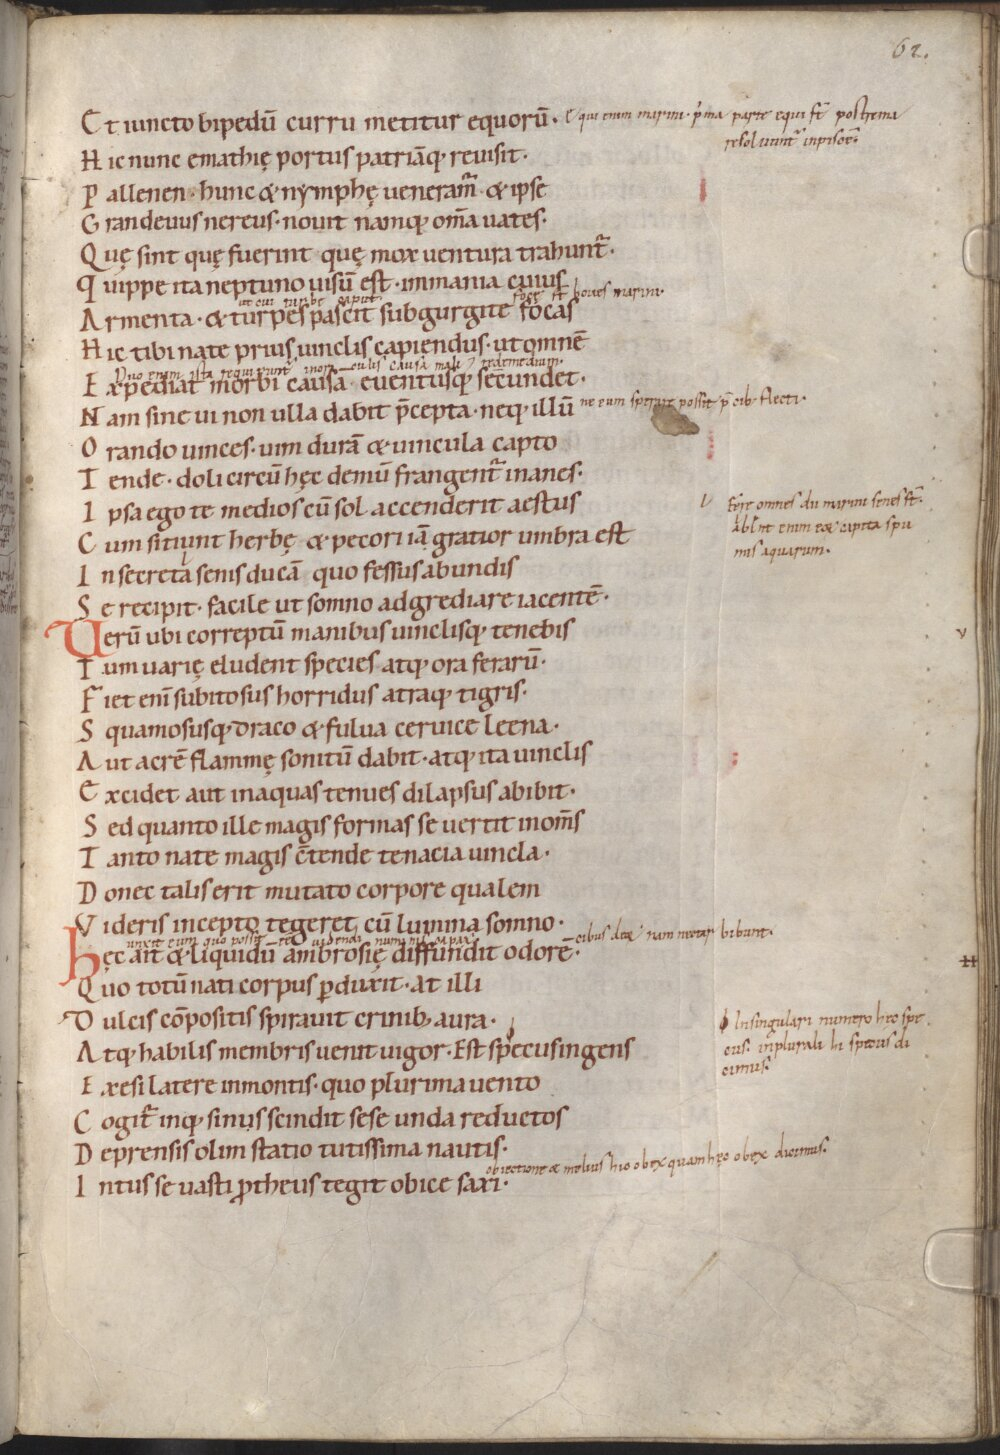 62.
Et iuncto bipedū curru metitur equorū· Equi enim marini· p̄ma parte equi st̄ postrema
resoluunt̄ inpiscē·
Hic nunc emathię portus patriāq; reuisit·
Pallenen· hunc & nymphę ueneram̄· & ipse
Grandeuus nereus· nouit namq; om̄a uates·
Quę sint quę fuerint quę mox uentura trahunt̄·
Quippe ita neptuno uisū est· immania cuius
Armenta· & turpes pascit subgurgite focas
Hic tibi nate prius uinclis capiendus· ut omnē
Expediat morbi causā euentusq; secundet·
Nam sine ui non ulla dabit p̄cepta· neq; illū
Orando uinces· uim durā & uincula capto
Tende· doli circū hęc demū frangent̄ inanes·
Ipsa ego te medios cū sol accenderit aestus
Fere omnes dii marini senes st̄·
Cum sitiunt herbę & pecori iā gratior umbra est
Albent enim eoꝝ capita spu
mis aquarum·
In secreta senis ducā quo fessus ab undis
Se recipit· facile ut somno adgrediare iacentē·
Verū ubi correptū manibus uinclisq; tenebis
Tum uarię eludent species atq; ora ferarū·
Fiet eni͂ subito sus horridus atraq; tigris·
Squamosusq; draco & fulua ceruice leena·
Aut acrē flammę sonitū dabit· atq; ita uinclis
Excidet aut inaquas tenues dilapsus abibit·
Sed quanto ille magis formas se uertit inom̄s
Tanto nate magis c̄tende tenacia uincla·
Donec talis erit mutato corpore qualem
Videris incepto tegeret cū lumina somno·
Hęc ait & liquidū ambrosię diffundit odorē·
Quo totū nati corpus ꝑduxit· at illi
Dulcis cōpositis spirauit crinib; aura·
Atq; habilis membris uenit uigor· Est specus ingens
In singulari numero hoc spe
cus· inplurali hi specus di
cimus·
Exesi latere inmontis· quo plurima uento
Cogit̄ inq; sinus scindit sese unda reductos
Deprensis olim statio tutissima nautis·
Intus se uasti ꝓtheus tegit obice saxi·